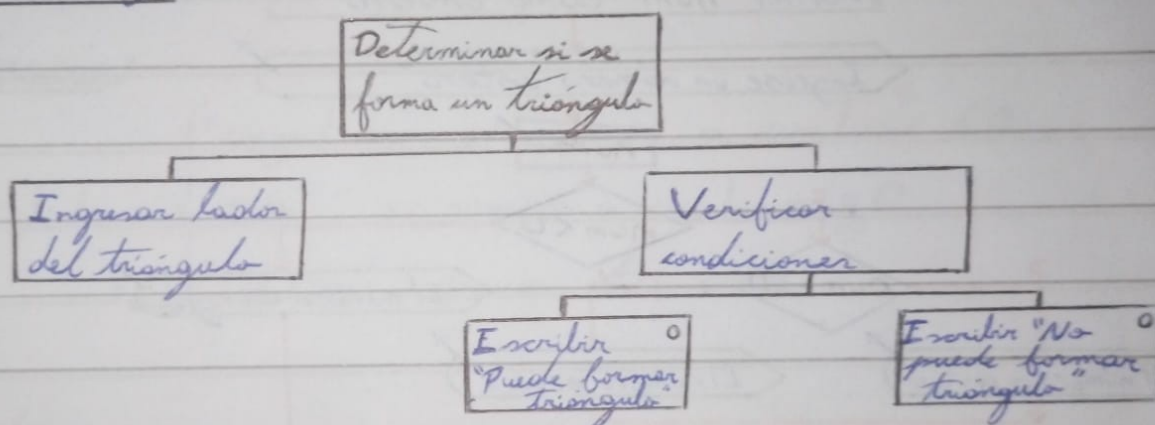 Determinar si se
forma un triángulo
Ingresar lados
del triángulo
Verificar
condiciones
Escribir
"Puede formar
triángulo"
Escribir "No
puede formar
triángulo"